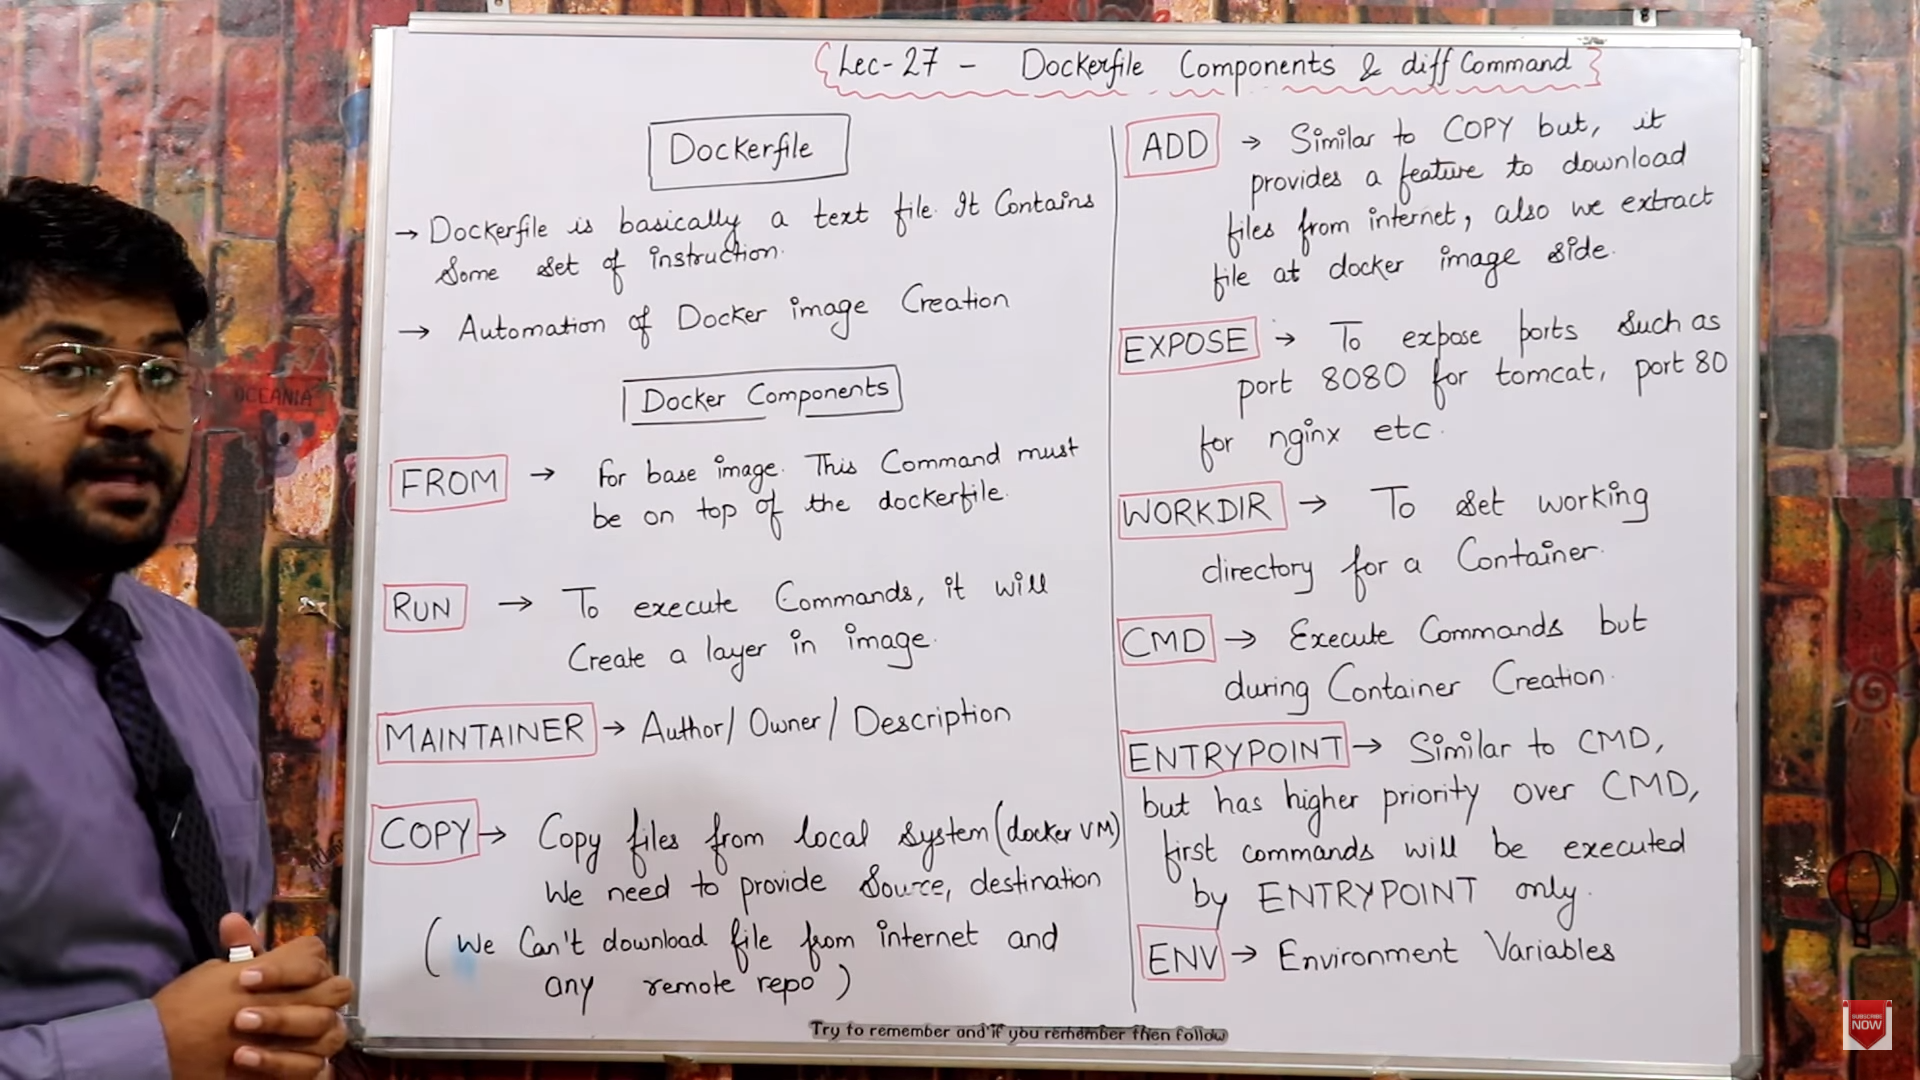 Lec-27 - Dockerfile Components & diff Command
Dockerfile
→ Dockerfile is basically a text file. It Contains
Some set of instruction.
→ Automation of Docker image Creation
Docker Components
FROM → for base image. This Command must
be on top of the dockerfile.
RUN → To execute Commands, it will
Create a layer in image.
MAINTAINER → Author/ Owner/ Description
COPY → Copy files from local system (docker VM)
We need to provide Source, destination
(We Can't download file from internet and
any remote repo)
ADD → Similar to COPY but, it
provides a feature to download
files from internet, also we extract
file at docker image side.
EXPOSE → To expose ports such as
port 8080 for tomcat, port 80
for nginx etc.
WORKDIR → To set working
directory for a Container.
CMD → Execute Commands but
during Container Creation.
ENTRYPOINT → Similar to CMD,
but has higher priority over CMD,
first commands will be executed
by ENTRYPOINT only.
ENV → Environment Variables
OCEANIA
Try to remember and if you remember then follow
SUBSCRIBE
NOW